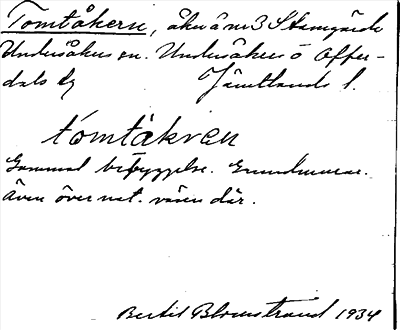 Tomtåkern, åker å nr 3 Stamgärde
Undersåkers sn. Undersåkers o Offer-
dals tg Jämtlands l.
tómtåkren
Gammal bebyggelse. Grundmurar.
även över nat. vägen där.
Bertil Blomstrand 1934